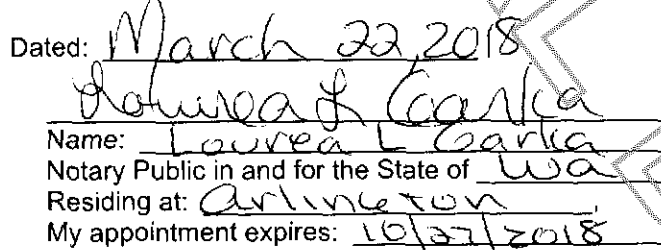 Dated: March 22, 2018
Lourea L Garka
Name: Lourea L Garka
Notary Public in and for the State of Wa
Residing at: Arlington,
My appointment expires: 10/27/2018